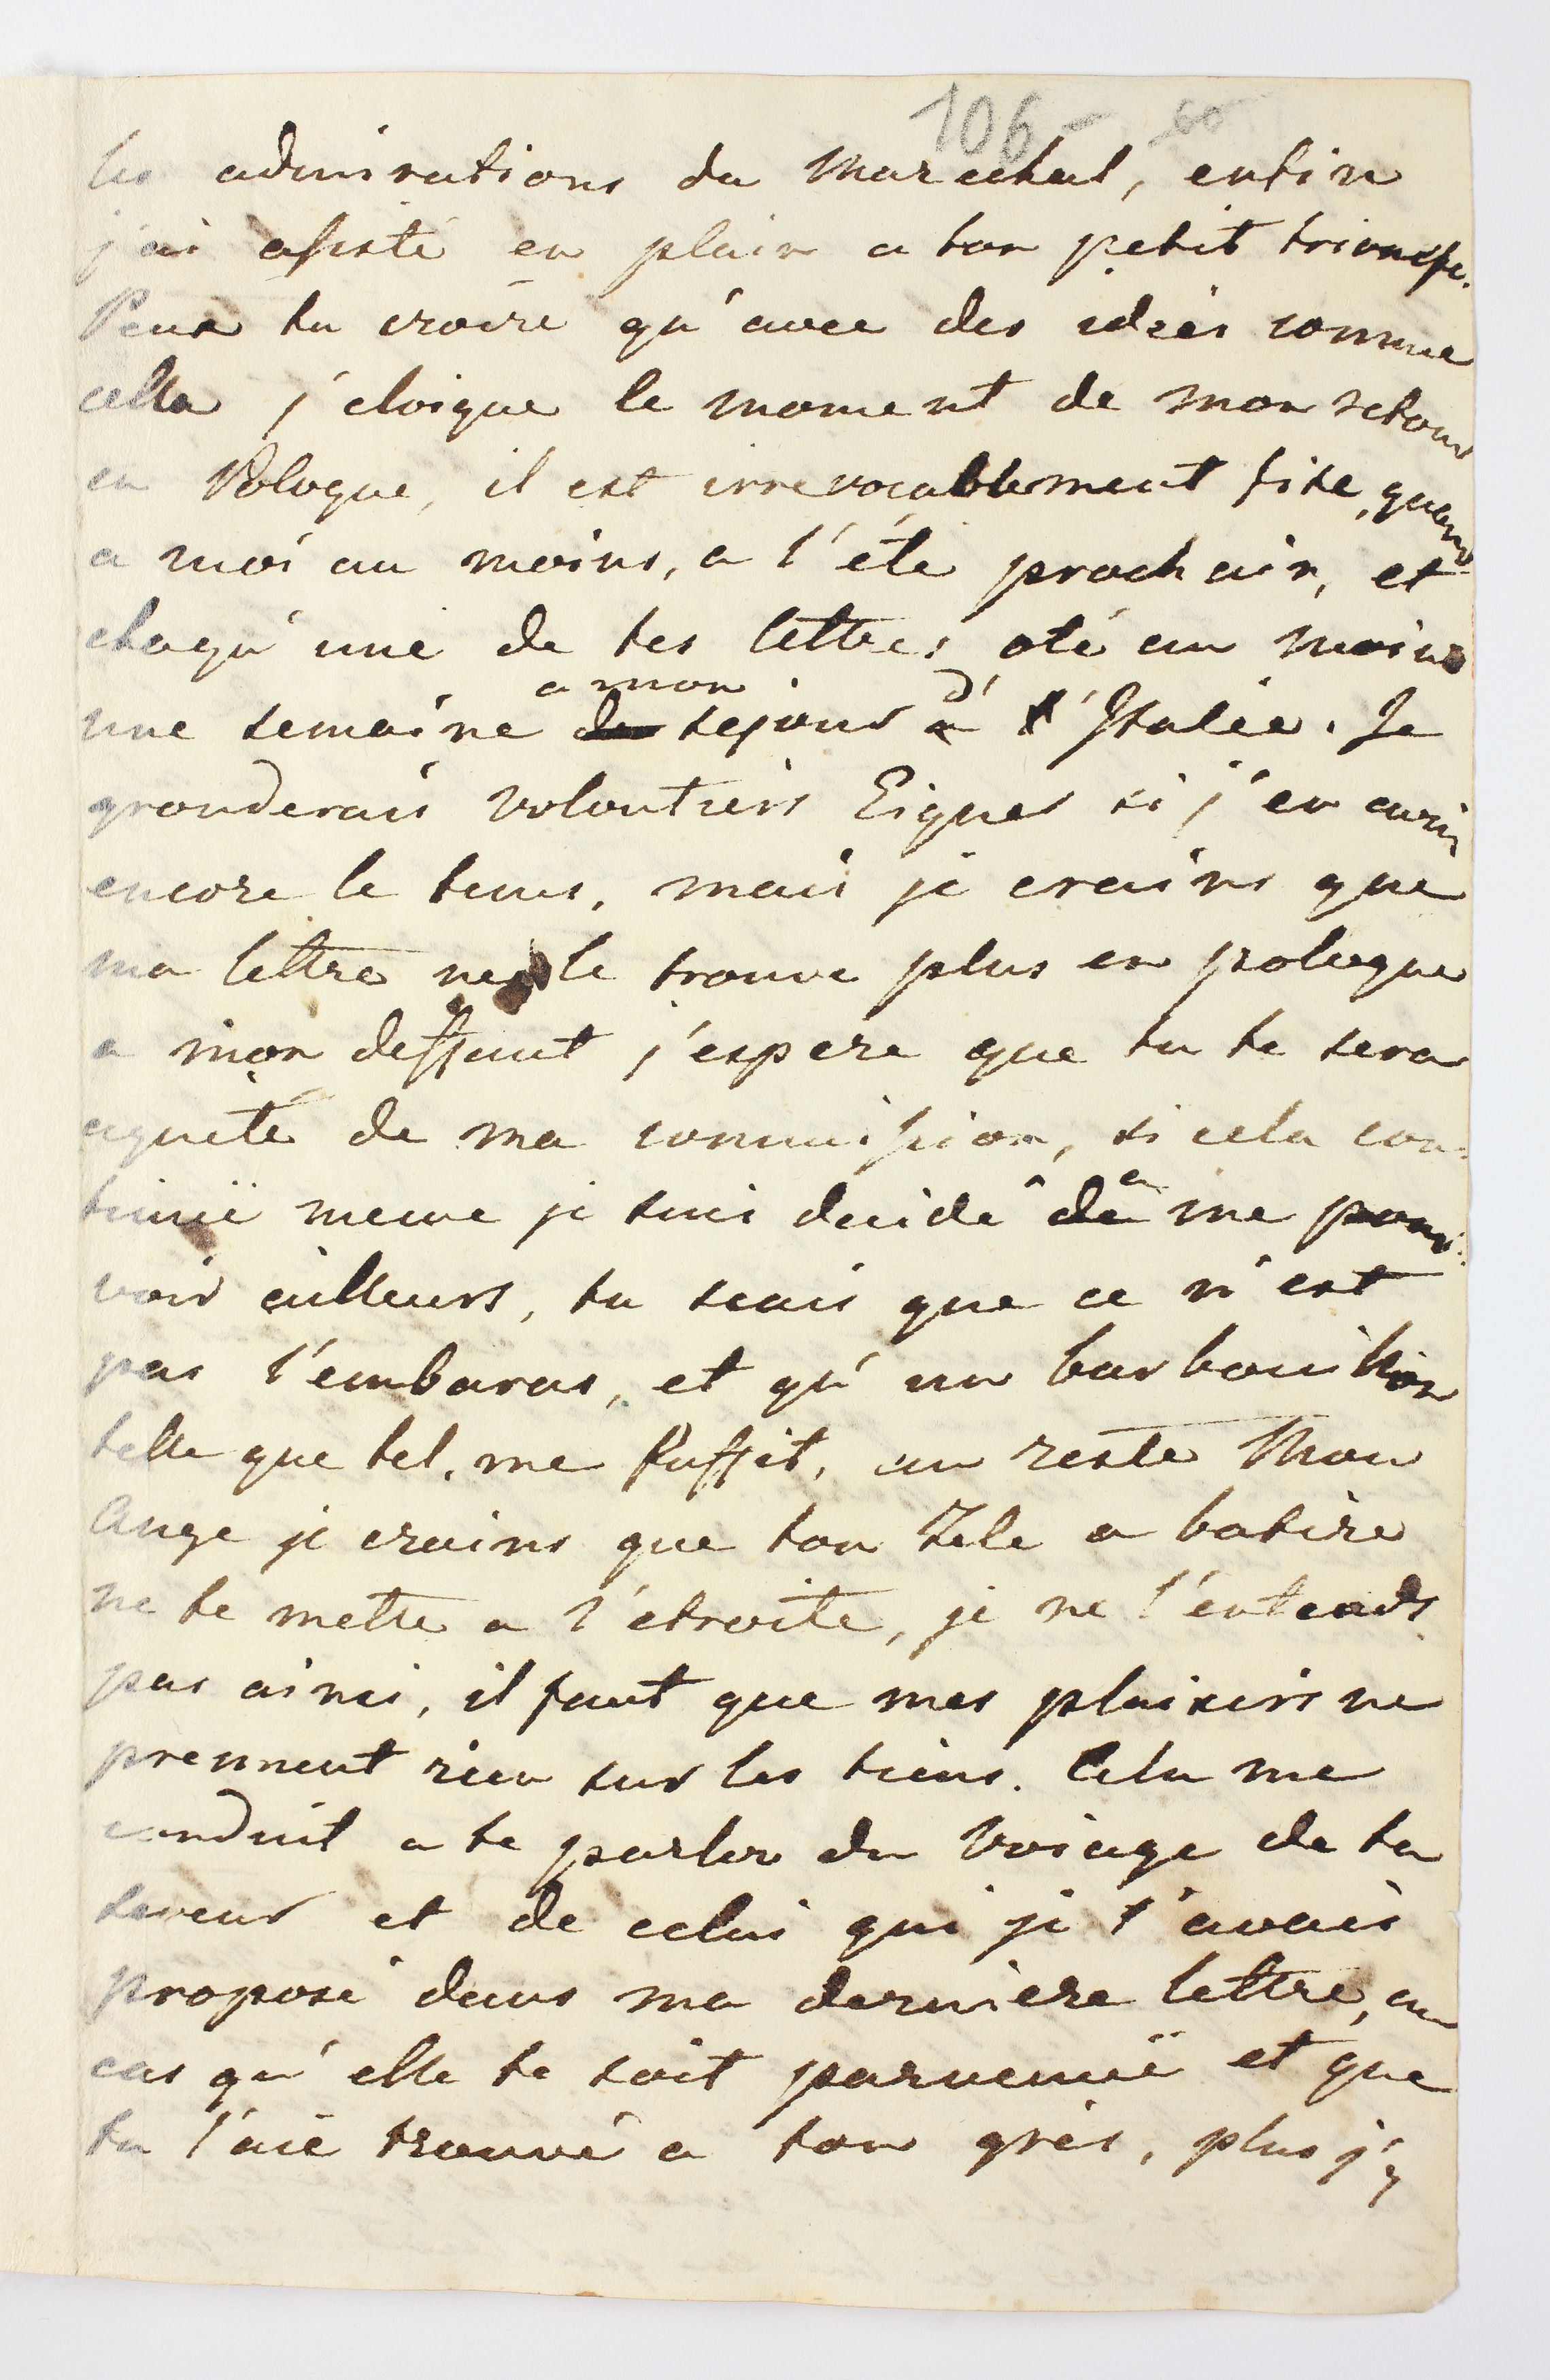 106 - 60
les admirations du Marechal, enfin
j'ai assisté en plain a ton petit triomphe.
Peux tu croire qu'avec des idées comme
cella j'eloigne le moment de mon retour
en Pologne, il est irrevocablement fixe, quand
a moi au moins, a l'éte prochain, et
chaqu'une de tes lettres oté au moins
a mon d'
une semaine de sejour a l'Italie. Je
gronderais volontiers Eigner si j'en avais
encore le tems, mais je crains que
ma lettre ne le trouve plus en pologne
a mon deffaut j'espere que tu te sera
aquité de ma commission, si cela con-
a
tinuë meme je suis decidé de me pour-
voir ailleurs, tu scais que ce n'est
pas l'embaras, et qu'un barbouillon
telle que tel, me suffit, au reste Mon
Ange je crains que ton Zele a batire
ne te mette a l'etroite, je ne l'entends
pas ainsi, il faut que mes plaisirs ne
prennent rien sur les tiens. Cela me
conduit a te parler du Voiage de ta
soeur et de celui que je t'avais
proposé dans ma derniere lettre, au
cas qu'elle te soit parvenuë et que
tu l'aie trouvé a ton grés, plus j'y